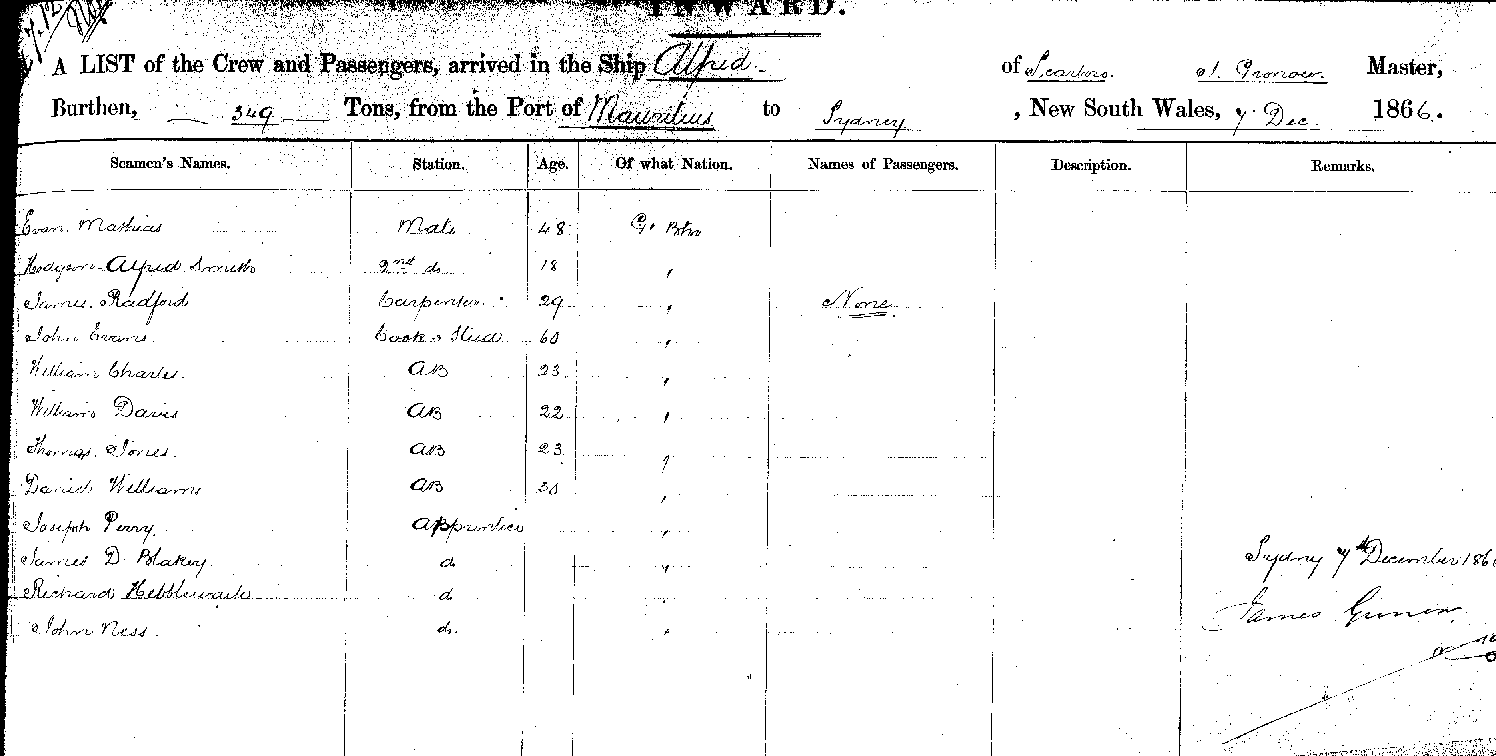 INWARD.
A LIST of the Crew and Passengers, arrived in the Ship Alfred of Scarboro. J. Gronow Master,
Burthen, 349 Tons, from the Port of Mauritius to Sydney, New South Wales, 7 Dec. 1866.
Seamen's Names. Station. Age. Of what Nation. Names of Passengers. Description. Remarks.
Evan Mathias Mate 48 Gt Btn
Hodgson Alfred Smith 2nd do 18 "
James Radford Carpenter 29 " None
John Evans Cook & Stud 60 "
William Charles AB 23 "
William Davies AB 22 "
Thomas Jones AB 23 "
David Williams AB 30 "
Joseph Perry Apprentice "
James D. Blakey do "
Sydney 7th December 186
Richard Hebblewaite do "
James Gronow
John Ness. do "